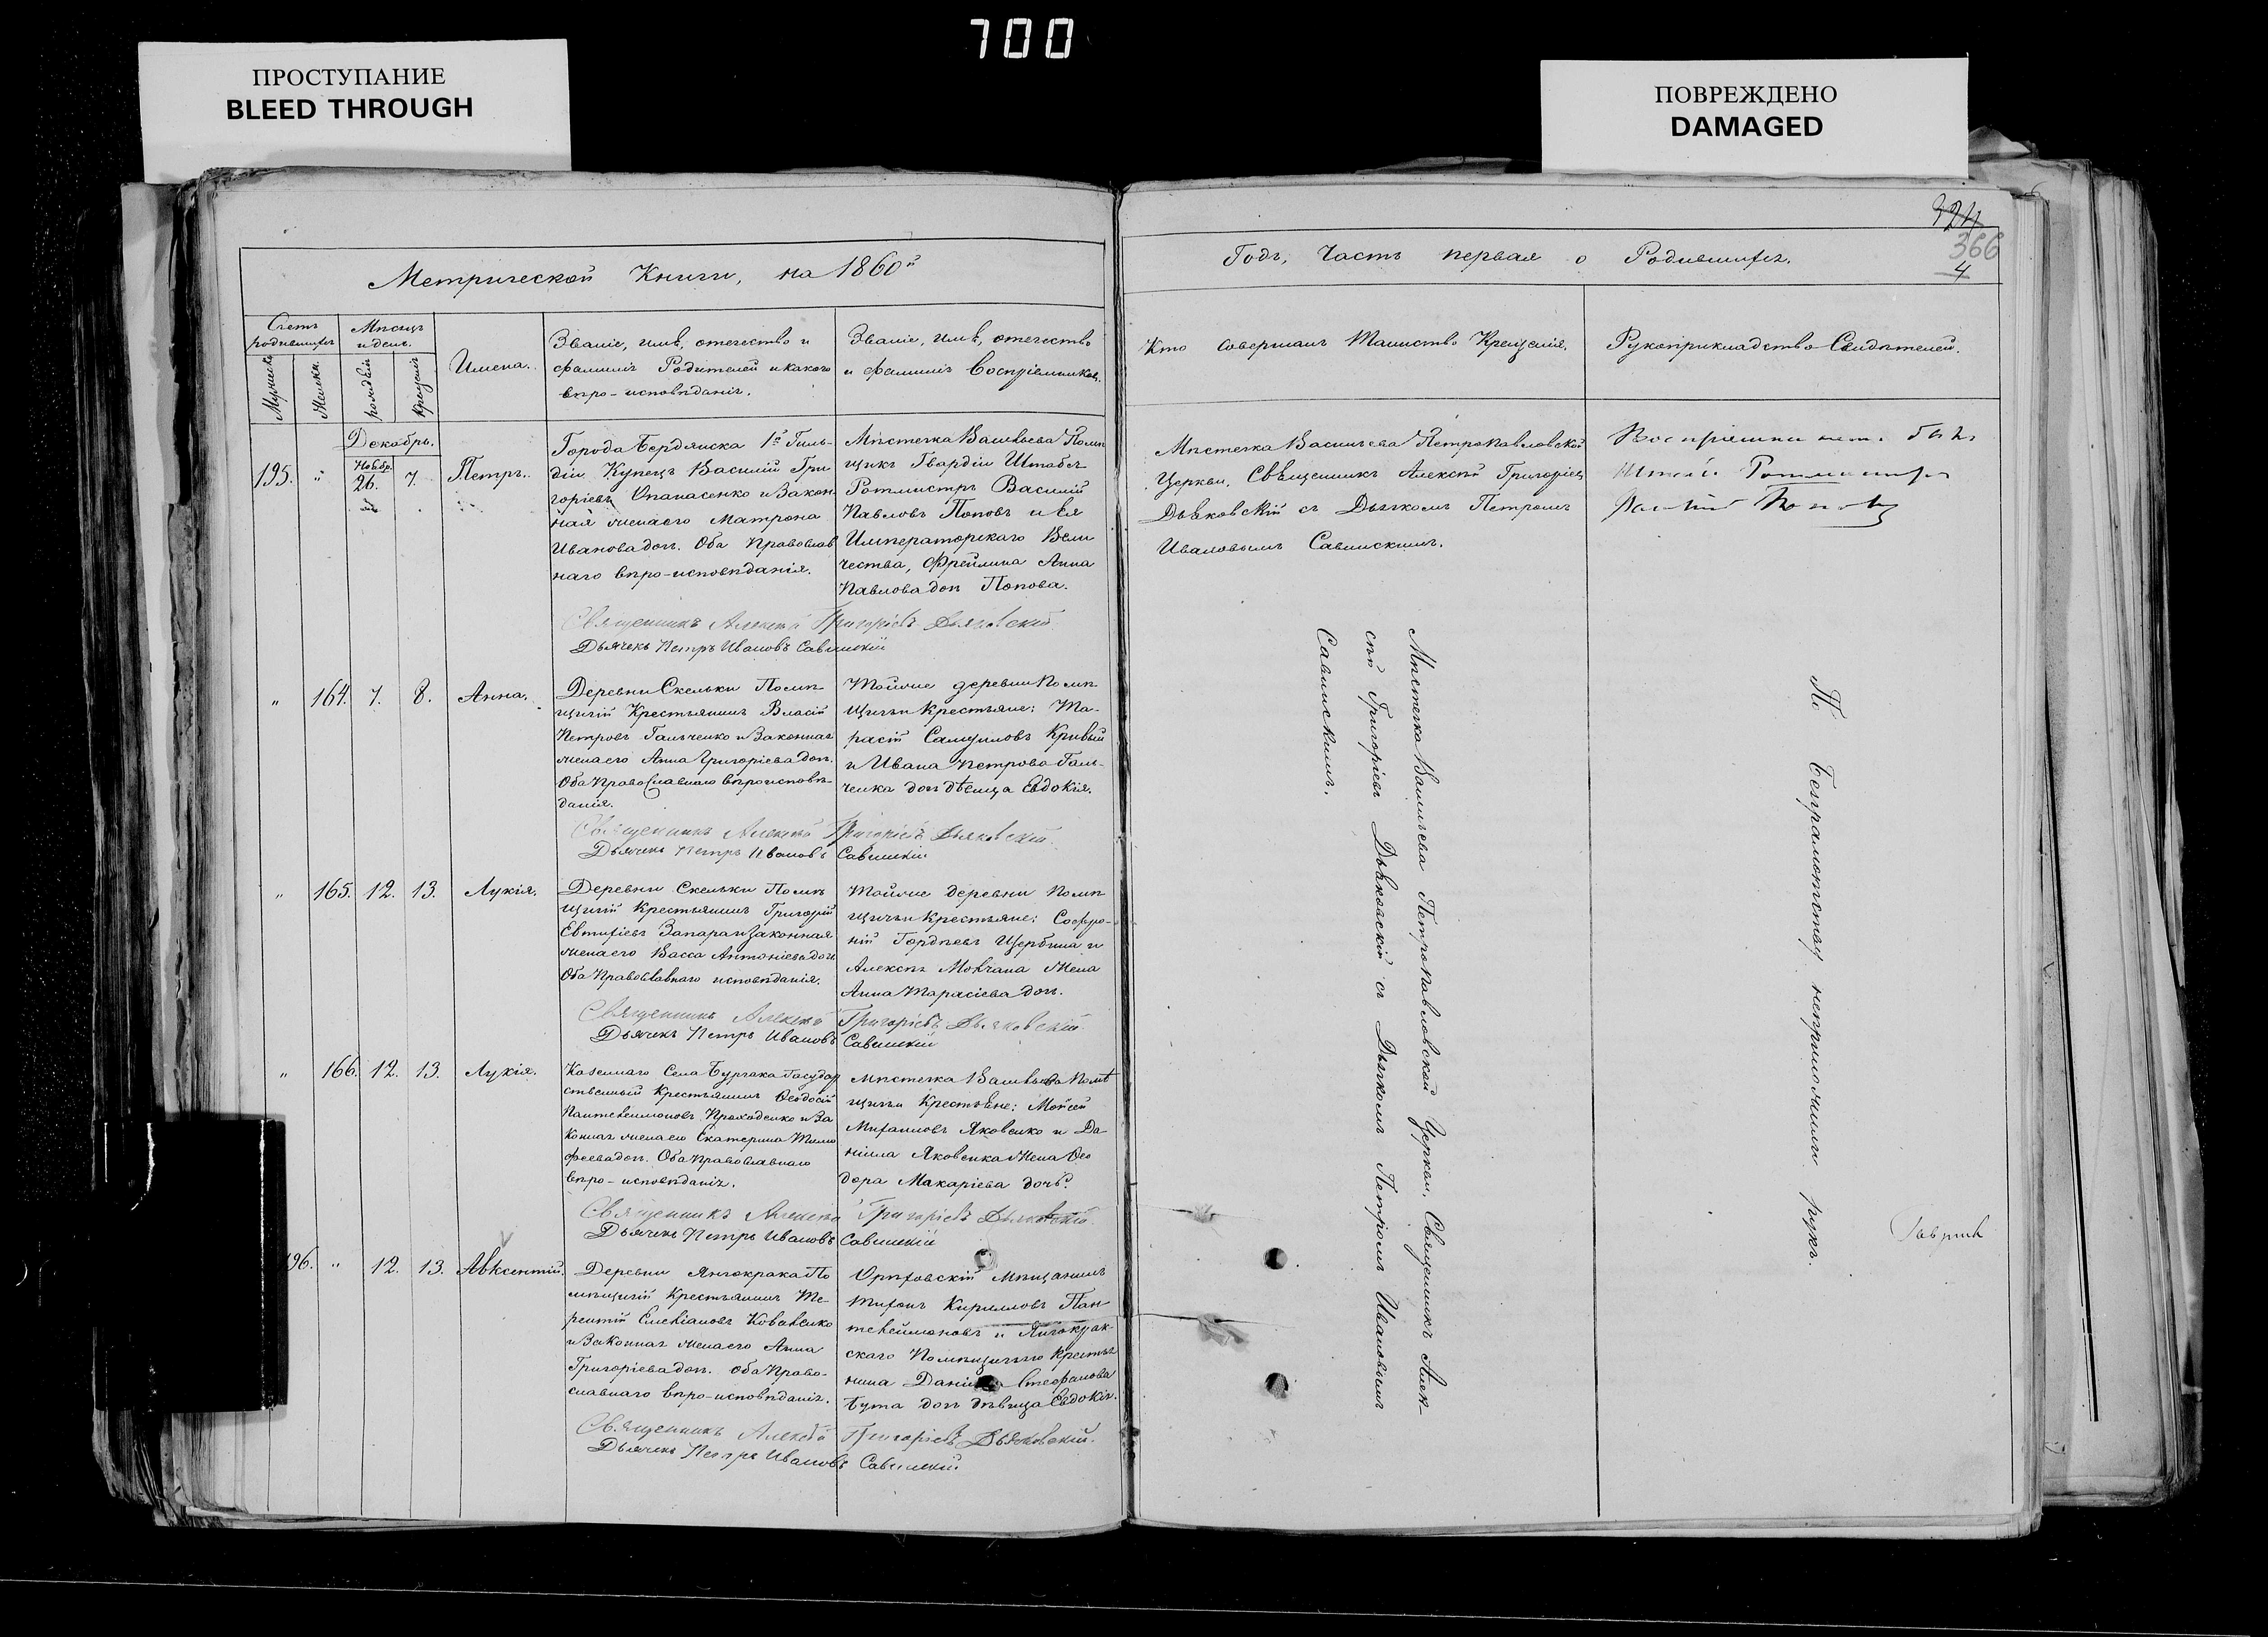 700
ПРОСТУПАНИЕ
BLEED THROUGH
ПОВРЕЖДЕНО
DAMAGED
Метрической Книги, на 1860й
Счетъ родившихся
Мѣсяцъ и день.
Мужеска
Женска.
рожденія
крещенія
Имена.
Званіе, имя, отечество и
фамилія Родителей и какого
вѣро-исповѣданія.
Званіе, имя, отечество
и фамилія Воспріемниковъ.
Декабрь.
195. " Ноябр. 26. 7. Петръ.
Города Бердянска 1й Гиль-
діи Купецъ Василій Гри
горіевъ Опанасенко и Закон-
ная жена его Матрона
Иванова доч. Оба Православ
наго вѣро-исповѣданія.
Мѣстечка Васильева Помѣ
щикъ Гвардіи Штабсъ
Ротмистръ Василій
Павловъ Поповъ и Ея
Императорскаго Вели
чества, Фрейлина Анна
Павлова доч Попова.
Священникъ Алексѣй Григоріевъ Дьяковскій
Дьячекъ Петръ Ивановъ Савинскій
" 164. 7. 8. Анна.
Деревни Скельки Помѣ
щичій Крестьянинъ Власій
Петровъ Гальченко и Законная
жена его Анна Григоріева доч.
Оба Православнаго вѣроисповѣ-
данія.
Тойже деревни Помѣ
щичьи Крестьяне: Та-
расій Самуиловъ Кривый
и Ивана Петрова Галь-
ченка доч дѣвица Евдокія.
Священникъ Алексѣй Григоріевъ Дьяковскій.
Дьячекъ Петръ Ивановъ Савинскій
" 165. 12. 13. Лукія.
Деревни Скельки Помѣ
щичій Крестьянинъ Григорій
Евтихіевъ Запара и Законная
жена его Васса Антоніева доч
Оба Православнаго исповѣданія.
Тойже деревни Помѣ
щичьи Крестьяне: Софро-
ній Гордѣевъ Щербина и
Алексѣя Мовчана Жена
Анна Тарасіева доч.
Священникъ Алексѣй Григоріевъ Дьяковскій.
Дьячекъ Петръ Ивановъ Савинскій
" 166. 12. 13. Лукія.
Казеннаго Села Бурчака Государ
ственный Крестьянинъ Ѳеодосій
Пантелеимоновъ Проходенко и За
конная жена его Екатерина Тимо
феева доч. Оба Православнаго
вѣро-исповѣданія.
Мѣстечка Васильева Помѣ
щичьи Крестьяне: Моисей
Михаиловъ Яковенко и Да
нила Яковенка Жена Ѳео
дора Макаріева дочь.
Священникъ Алексѣй Григоріевъ Дьяковскій.
Дьячекъ Петръ Ивановъ Савинскій
196. " 12. 13. Авксентій.
Деревни Янчокрака По
мѣщичій Крестьянинъ Те-
рентій Коваленко
и Законная жена его Анна
Григоріева доч. Оба Право-
славнаго вѣро-исповѣданія.
Орѣховскій Мѣщанинъ
Тихонъ Кирилловъ Пан
телеймоновъ и Янчокрак-
скаго Помѣщичьяго Крестья
нина Стефанова
Бута доч дѣвица Евдокія.
Священникъ Алексѣй Григоріевъ Дьяковскій.
Дьячекъ Петръ Ивановъ Савинскій
Годъ, Часть первая о Родившихся.
324
366
4
Кто совершалъ Таинство Крещенія.
Рукоприкладство Свидѣтелей.
Мѣстечка Васильева Петропавловской
Церкви, Священникъ Алексѣй Григоріевъ
Дьяковскій съ Дьячкомъ Петромъ
Ивановымъ Савинскимъ.
Василій Поповъ
Мѣстечка Васильева Петропавловской Церкви, Священникъ Алек-
сѣй Григоріевъ Дьяковскій съ Дьячкомъ Петромъ Ивановымъ
Савинскимъ.
По безграмотству неприложили рукъ.